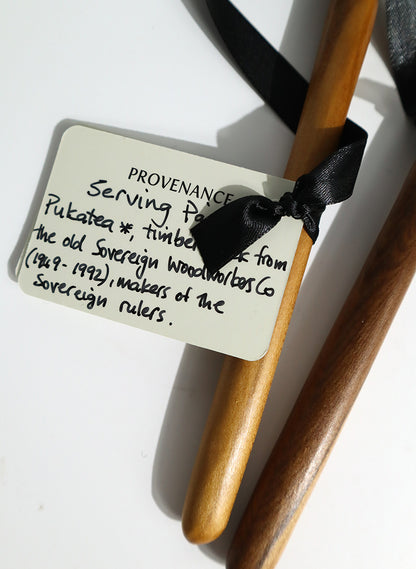 PROVENANCE
Serving
Pukatea *, timber from
the old Sovereign Woodworkers Co
(1949-1992), makers of the
Sovereign rulers.